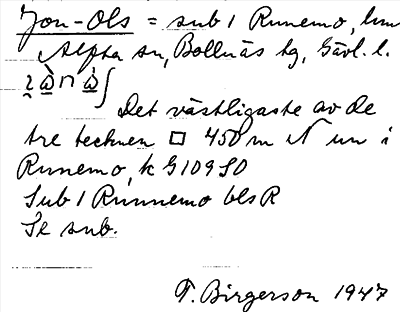 Jon-Ols = sub 1 Runemo, hmn
Alpha sn, Bollnäs tg, Gävl. l.
Det västligaste av de
tre tecknen □ 450 m N un i
Runemo, k G 109 SO
Sub 1 Runnemo bls R
Se sub.
T. Birgerson 1947